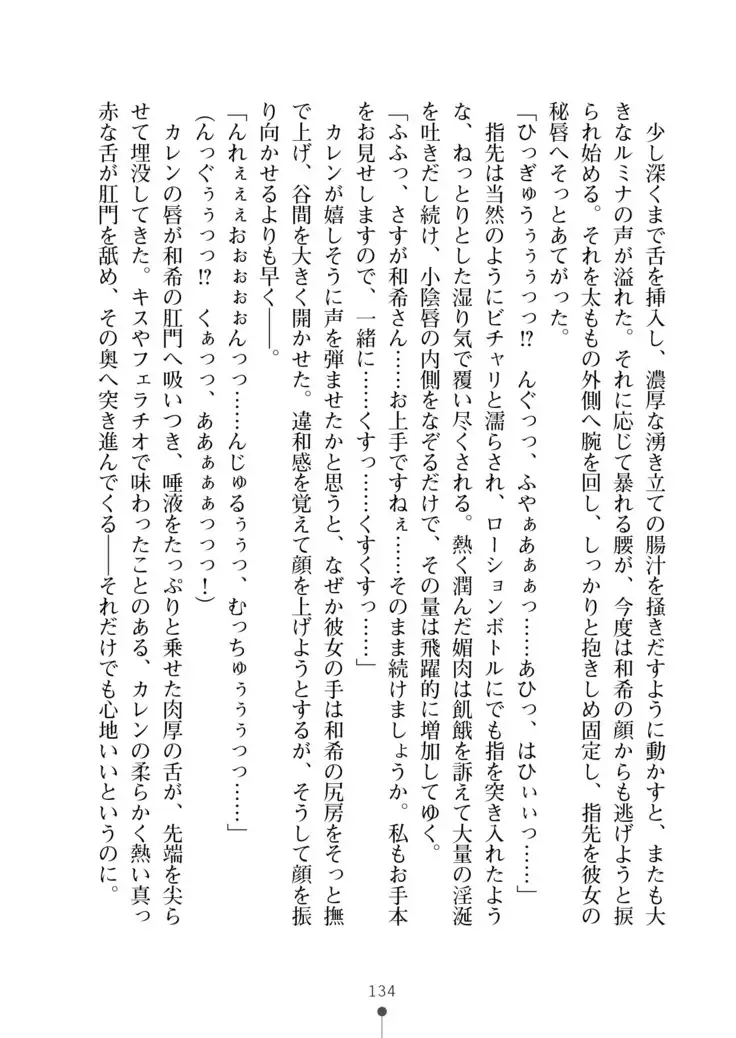 少し深くまで舌を挿入し、濃厚な湧き立ての腸汁を掻きだすように動かすと、またも大
きなルミナの声が溢れた。それに応じて暴れる腰が、今度は和希の顔からも逃げようと捩
られ始める。それを太ももの外側へ腕を回し、しっかりと抱きしめ固定し、指先を彼女の
秘唇へそっとあてがった。
「ひっぎゅうぅぅぅっっ!?　んぐっっ、ふやぁあぁぁっ……あひっ、はひぃぃっ……」
　指先は当然のようにビチャリと濡らされ、ローションボトルにでも指を突き入れたよう
な、ねっとりとした湿り気で覆い尽くされる。熱く潤んだ媚肉は飢餓を訴えて大量の淫涎
を吐きだし続け、小陰唇の内側をなぞるだけで、その量は飛躍的に増加してゆく。
「ふふっ、さすが和希さん……お上手ですねぇ……そのまま続けましょうか。私もお手本
をお見せしますので、一緒に……くすっ……くすくすっ……」
　カレンが嬉しそうに声を弾ませたかと思うと、なぜか彼女の手は和希の尻房をそっと撫
で上げ、谷間を大きく開かせた。違和感を覚えて顔を上げようとするが、そうして顔を振
り向かせるよりも早く――。
「んれぇぇぇおぉぉぉぉんっっ……んじゅるぅぅっ、むっちゅぅぅぅっっ……」
（んっぐぅぅっっ!?　くぁっっ、ああぁぁぁっっっ！）
　カレンの唇が和希の肛門へ吸いつき、唾液をたっぷりと乗せた肉厚の舌が、先端を尖ら
せて埋没してきた。キスやフェラチオで味わったことのある、カレンの柔らかく熱い真っ
赤な舌が肛門を舐め、その奥へ突き進んでくる――それだけでも心地いいというのに。
134